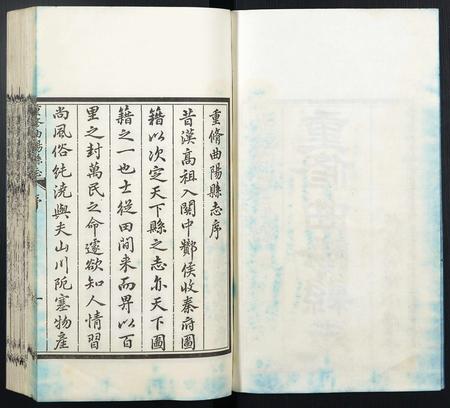 重脩曲陽縣志序
昔漢高祖入關中酇侯收秦府圖
籍以次定天下縣之志亦天下圖
籍之一也士從田間来而畀以百
里之封萬民之命遽欲知人情習
尚風俗純澆與夫山川阨塞物產
曲陽縣志 序 一